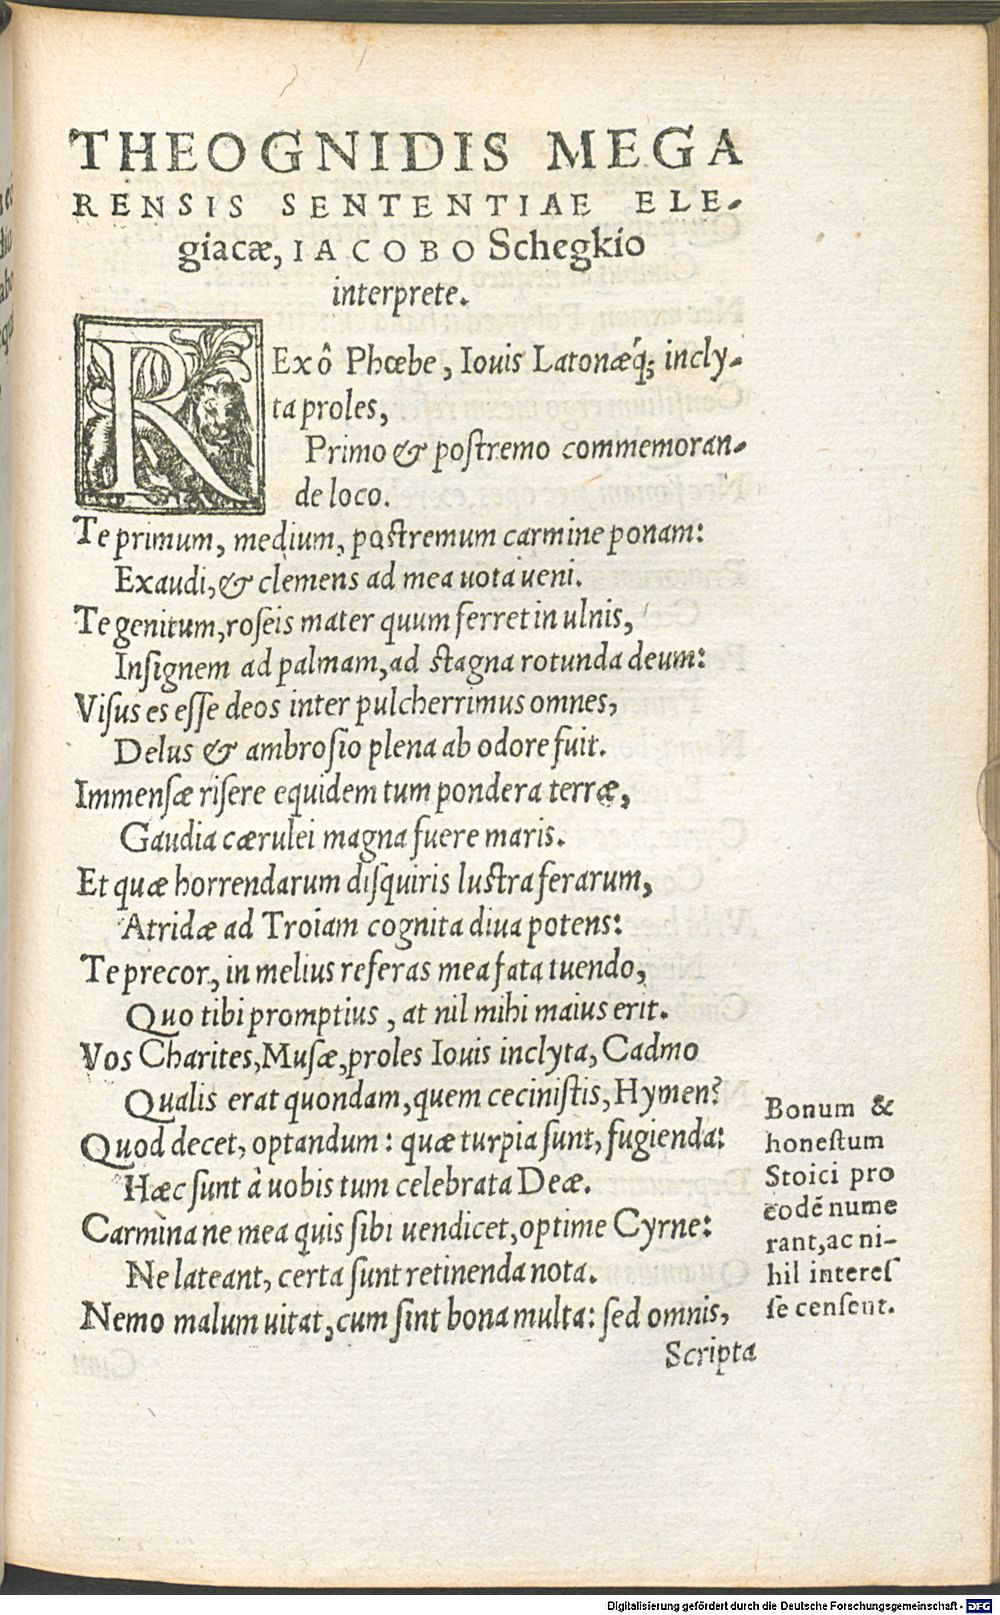 THEOGNIDIS MEGA
RENSIS SENTENTIAE ELE-
giacæ, IACOBO Schegkio
interprete.
REx ô Phœbe, Iouis Latonæq́; incly-
ta proles,
Primo & postremo commemoran-
de loco.
Te primum, medium, postremum carmine ponam:
Exaudi, & clemens ad mea uota ueni.
Te genitum, roseis mater quum ferret in ulnis,
Insignem ad palmam, ad stagna rotunda deum:
Visus es esse deos inter pulcherrimus omnes,
Delus & ambrosio plena ab odore fuit.
Immensæ risere equidem tum pondera terræ,
Gaudia cærulei magna fuere maris.
Et quæ horrendarum disquiris lustra ferarum,
Atridæ ad Troiam cognita diua potens:
Te precor, in melius referas mea fata tuendo,
Quo tibi promptius, at nil mihi maius erit.
Vos Charites, Musæ, proles Iouis inclyta, Cadmo
Qualis erat quondam, quem cecinistis, Hymen?
Quod decet, optandum: quæ turpia sunt, fugienda:
Hæc sunt à uobis tum celebrata Deæ.
Carmina ne mea quis sibi uendicet, optime Cyrne:
Ne lateant, certa sunt retinenda nota.
Nemo malum uitat, cum sint bona multa: sed omnis,
Scripta
Bonum &
honestum
Stoici pro
eodē nume
rant, ac ni-
hil interes
se censent.
Digitalisierung gefördert durch die Deutsche Forschungsgemeinschaft - DFG